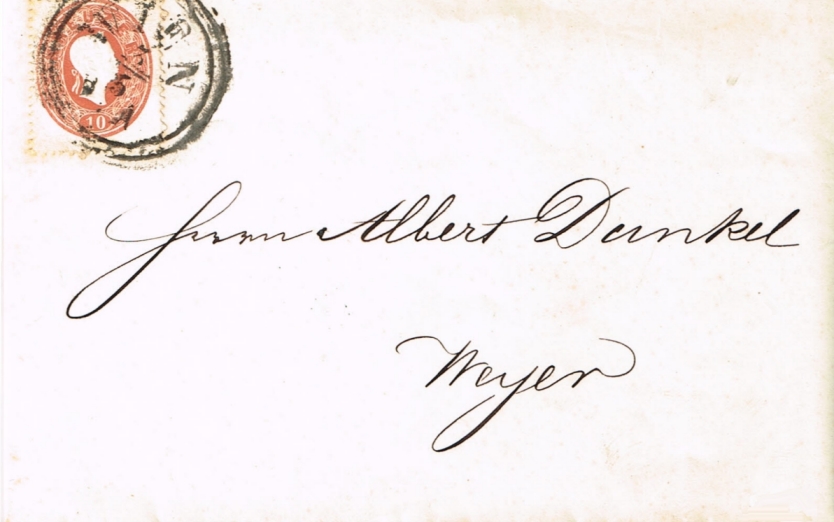 WIEN
10
Herrn Albert Dunkel
Weyer